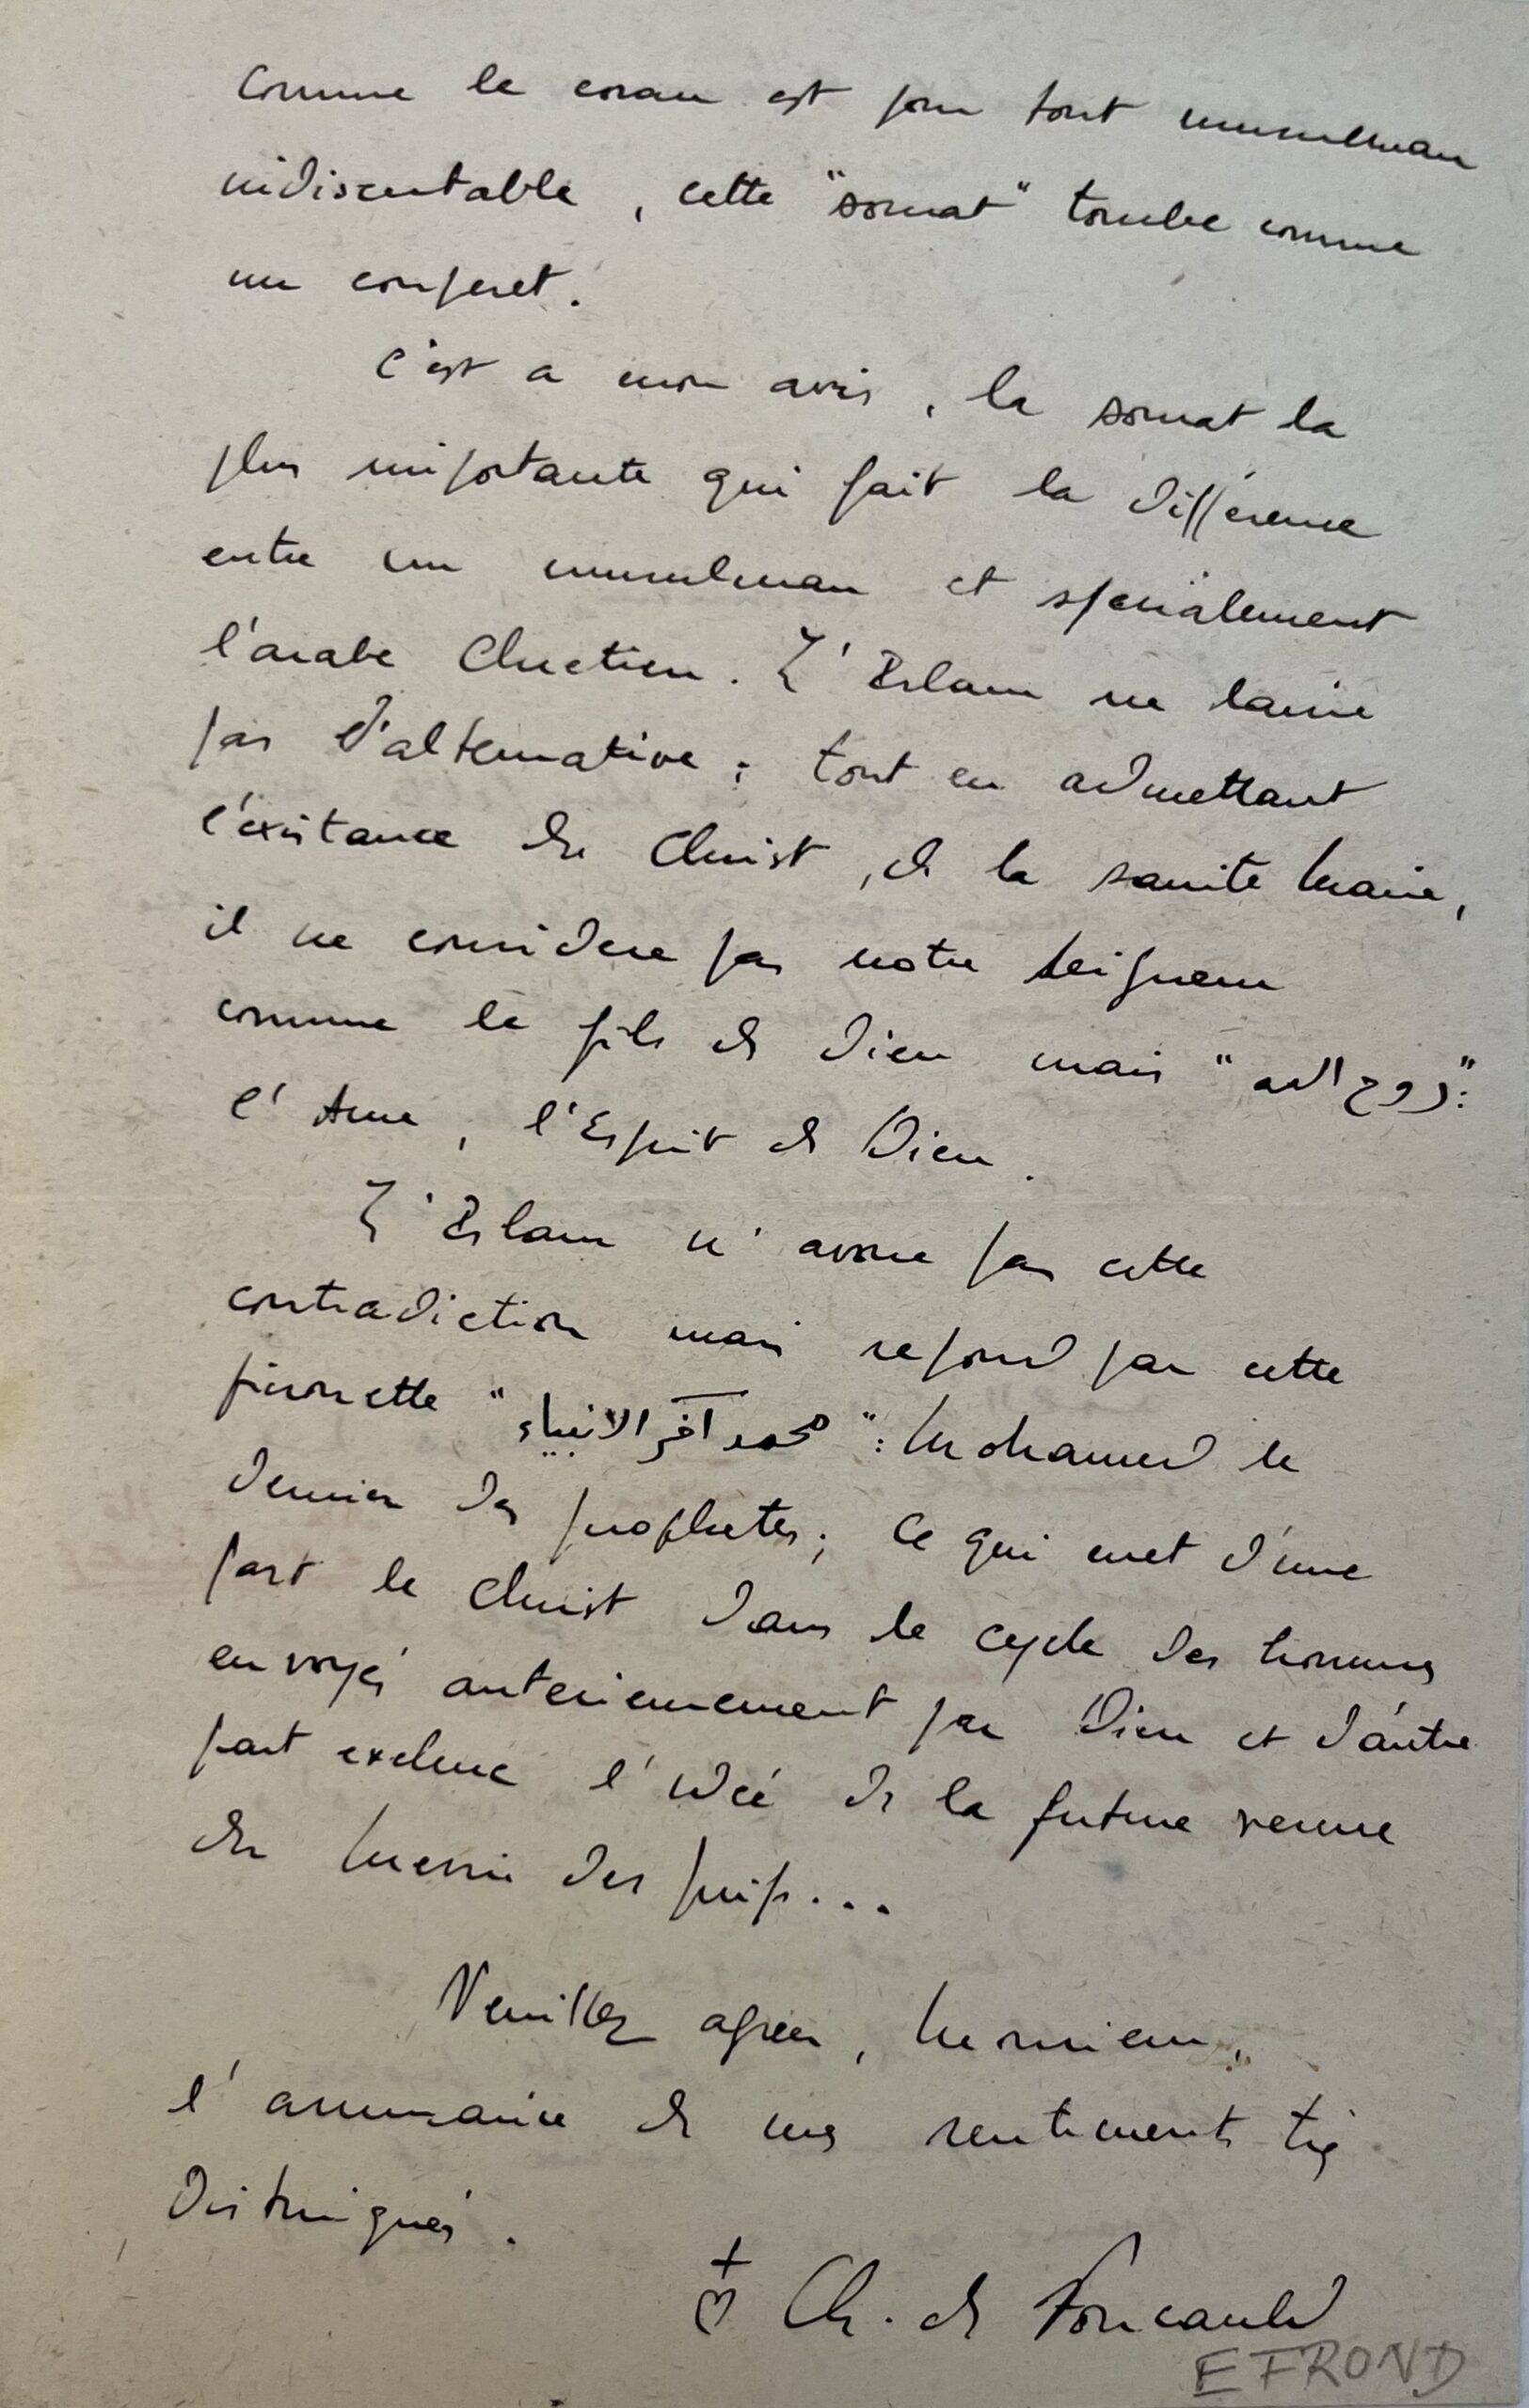 Comme le coran est pour tout musulman
indiscutable, cette "sourat" tombe comme
un couperet.
C'est a mon avis, la sourat la
plus importante qui fait la différence
entre un musulman et specialement
l'arabe Chretien. L'Islam ne laisse
pas d'alternative ; tout en admettant
l'existance du Christ, de la sainte Marie,
il ne considere pas notre Seigneur
comme le fils de Dieu mais "روح الله":
l'Ame, l'Esprit de Dieu.
L'Islam n'avoue pas cette
contradiction mais repond par cette
pirouette "محمد آخر الانبياء": Mohamed le
dernier des prophetes; ce qui met d'une
part le Christ dans le cycle des hommes
envoyés anterieurement par Dieu et d'autre
part exclue l'idée de la future venue
du Messie des juifs...
Veuillez agreer, Monsieur,
l'assurance de mes sentiments très
distingués.
Ch. de Foucauld
EFROND